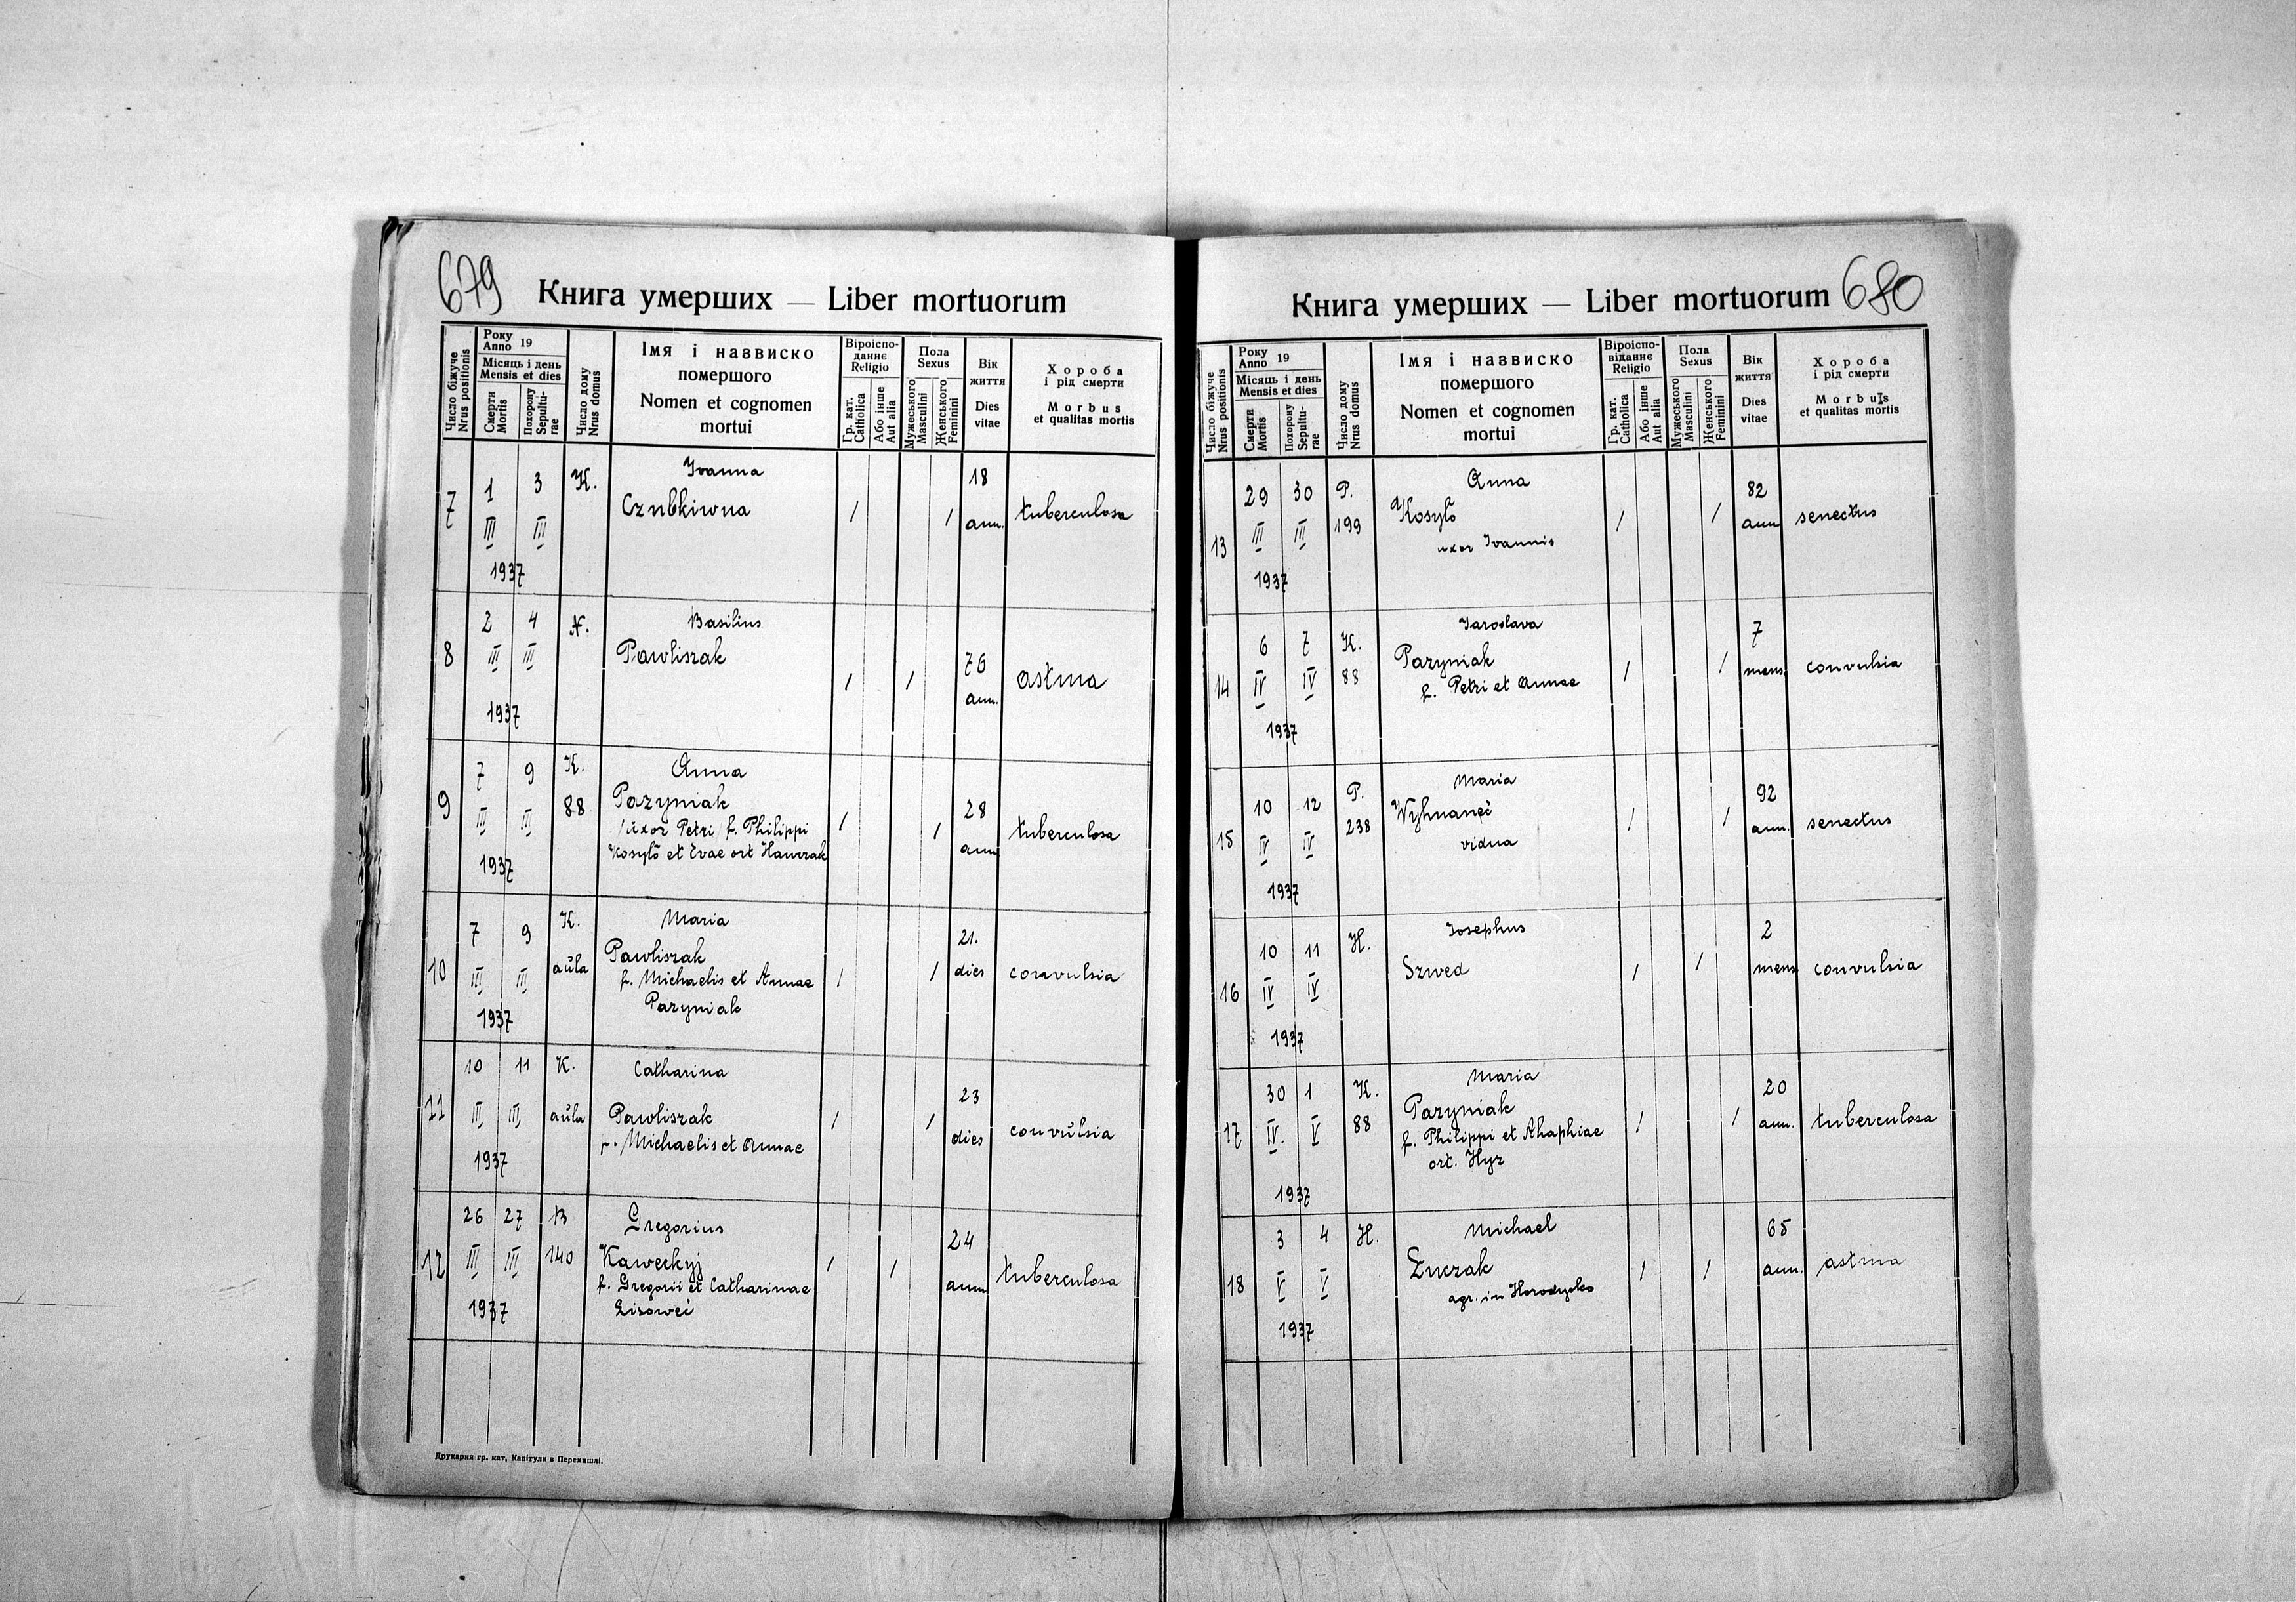 679
Книга умерших — Liber mortuorum
Число біжуче
Nrus positionis
Року
Anno 19
Місяць і день
Mensis et dies
Смерти
Mortis
Похорону
Sepultu-
rae
Число дому
Nrus domus
Імя і назвиско
помершого
Nomen et cognomen
mortui
Віроіспо-
даннє
Religio
Гр. кат.
Catholica
Або інше
Aut alia
Пола
Sexus
Мужеського
Masculini
Женського
Feminini
Вік
життя
Dies
vitae
Хороба
і рід смерти
Morbus
et qualitas mortis
7 1 3 K. Ivanna 18
III III Czubkiwna / / ann. tuberculosa
1937
8 2 4 N. Basilius
III III Pawliszak / / 76 astma
1937 ann.
9 7 9 K. Anna
III III 88 Pazyniak / / 28 tuberculosa
/uxor Petri/ f. Philippi ann
Kosyło et Evae ort Hawrzak
1937
10 7 9 K. Maria 21.
III III aula Pawliszak / / dies convulsia
f. Michaelis et Annae
Pazyniak
1937
11 10 11 K. Catharina 23
III III aula Pawliszak / / dies convulsia
f. Michaelis et Annae
1937
12 26 27 B Gregorius 24
III III 140 Kaweckyj / / ann tuberculosa
f. Gregorii et Catharinae
Lisoweć
1937
Друкарня гр. кат, Капітули в Перемишлі.
Книга умерших — Liber mortuorum 680
Число біжуче
Nrus positionis
Року
Anno 19
Місяць і день
Mensis et dies
Смерти
Mortis
Похорону
Sepultu-
rae
Число дому
Nrus domus
Імя і назвиско
помершого
Nomen et cognomen
mortui
Віроіспо-
віданнє
Religio
Гр. кат.
Catholica
Або інше
Aut alia
Пола
Sexus
Мужеського
Masculini
Женського
Feminini
Вік
життя
Dies
vitae
Хороба
і рід смерти
Morbus
et qualitas mortis
13 29 30 P. Anna 82
III III 199 Kosyło / / ann senectus
uxor Ivannis
1937
14 6 7 K. Iaroslava 7
IV IV 88 Pazyniak / / mens. convulsia
f. Petri et Annae
1937
15 10 12 P. Maria 92
IV IV 238 Wyhnaneć / / ann. senectus
vidua
1937
16 10 11 H. Iosephus 2
IV IV Szwed / / mens convulsia
1937
17 30 1 K. Maria 20
IV. V 88 Pazyniak / / ann. tuberculosa
f. Philippi et Ahaphiae
ort. Hyz
1937
18 3 4 H. Michael 65
V V Łuczak / / ann. astma
agr. in Horodysko
1937